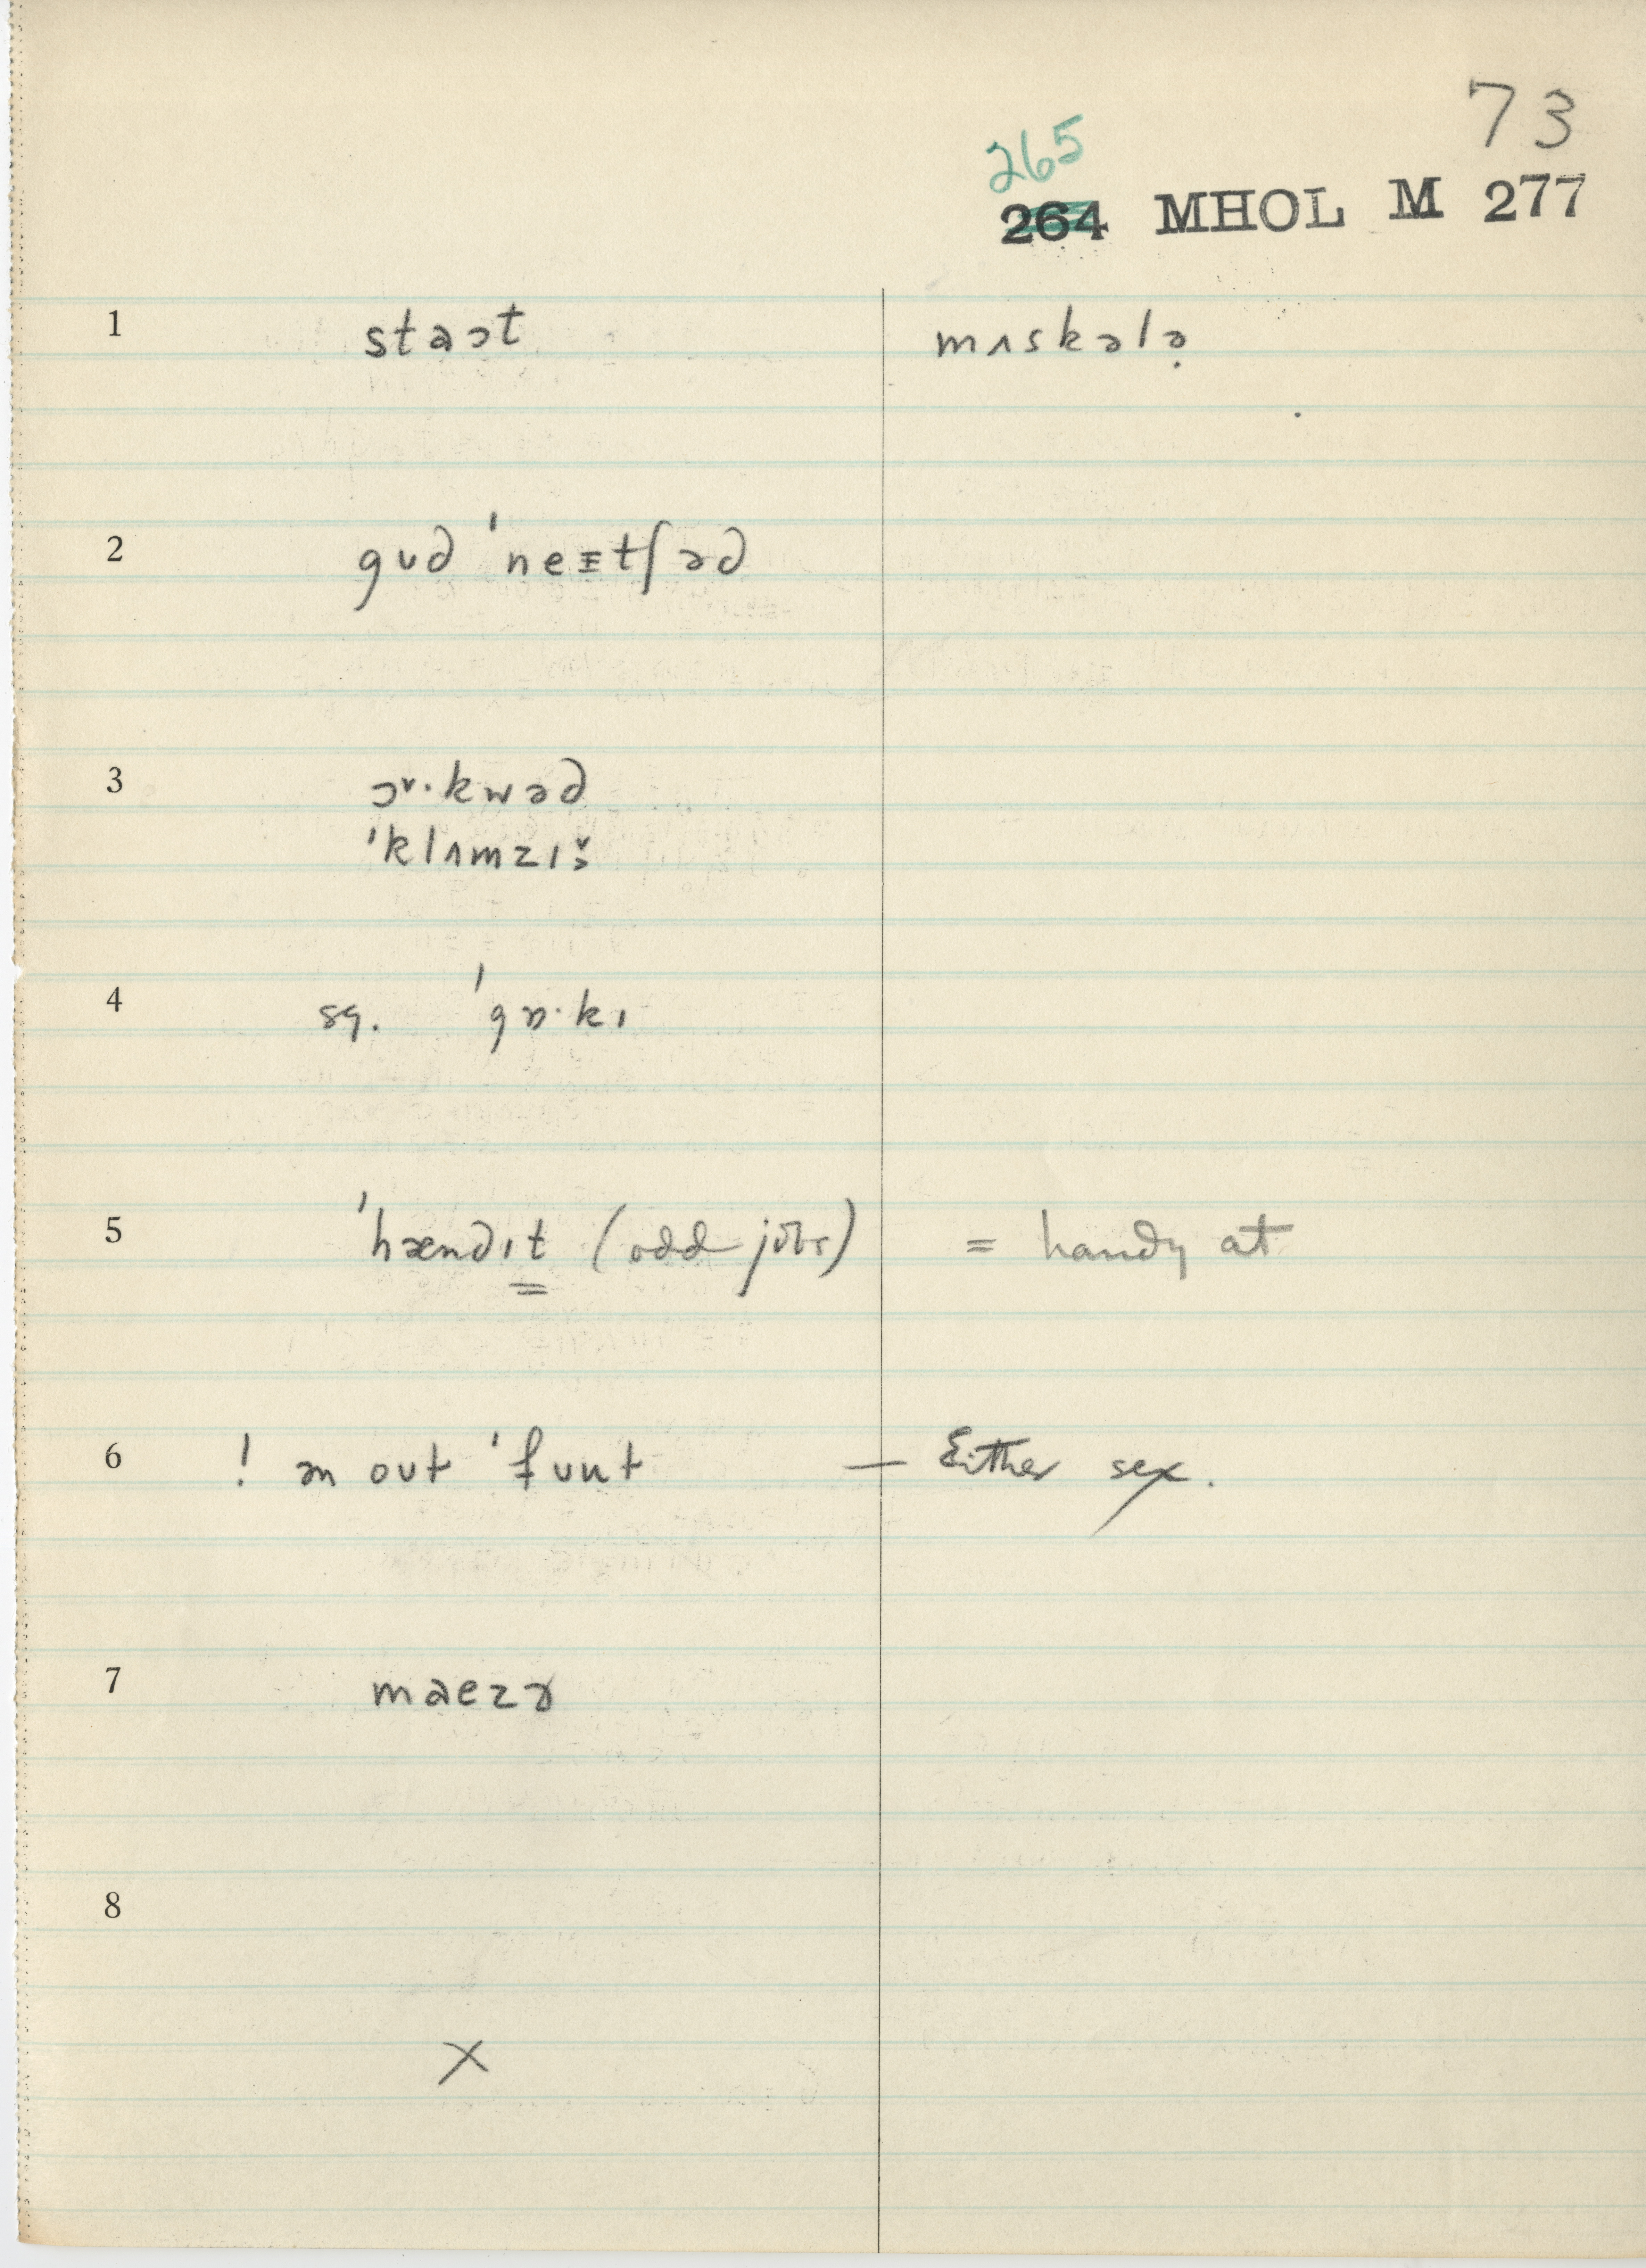 73
265
264 MHOL M 277
1 staɔt mʌskələ̣
2 gʊd 'neɪtʃəd
3 ɔ˞·kwəd
'klʌmzɪ
4 sq. 'gɒ·kɪ
5 'hændɪt (odd jobs) = handy at
6 ! ən out — Either sex.
7 maezɚ
8
X